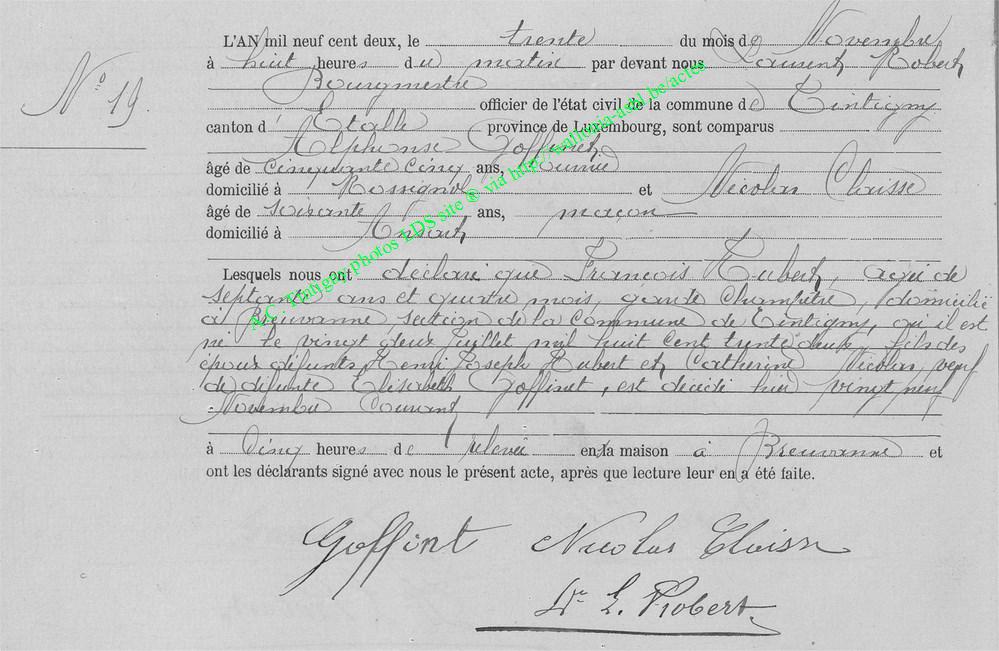 N° 19.
L'AN mil neuf cent deux, le trente du mois de Novembre
à huit heures du matin par devant nous Laurent Robert
Bourgmestre
officier de l'état civil de la commune de Tintigny
canton d'Etalle province de Luxembourg, sont comparus
Alphonse Goffinet,
âgé de cinquante cinq ans,
domicilié à Rossignol et Nicolas Claisse
âgé de soixante ans, maçon
domicilié à Ansart
Lesquels nous ont déclaré que François Hubert, agé de
septante ans et quatre mois, garde champêtre, domicilié
à Breuvanne, section de la commune de Tintigny, où il est
né le vingt deux juillet mil huit cent trente deux, fils des
époux défunts, Henri Joseph Hubert et Catherine Nicolas, veuf
de défunte Elisabeth Goffinet, est décédé hier vingt neuf
Novembre courant
à cinq heures de relevée en sa maison à Breuvanne et
ont les déclarants signé avec nous le présent acte, après que lecture leur en a été faite.
Goffinet Nicolas Claisse
Dr L. Robert
A.C. Tintigny photos LDS site ® via http://wallonia-asbl.be/actes